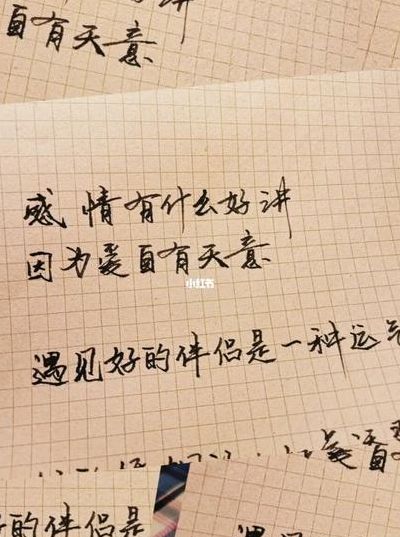 讲
自有天意
感情有什么好讲
因为爱自有天意
小红书
遇见好的伴侣是一种运气
的伴侣是
遇见